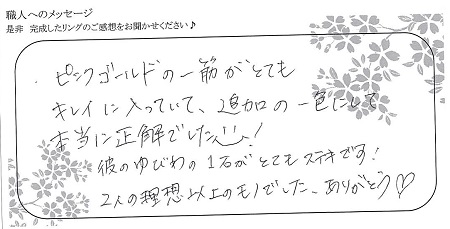 職人へのメッセージ
是非 完成したリングのご感想をお聞かせください♪
ピンクゴールドの一筋がとても
キレイに入っていて、追加の一色にして
本当に正解でした!
彼のゆびわの1石がとてもステキです!
2人の理想以上のモノでした、ありがとう♡